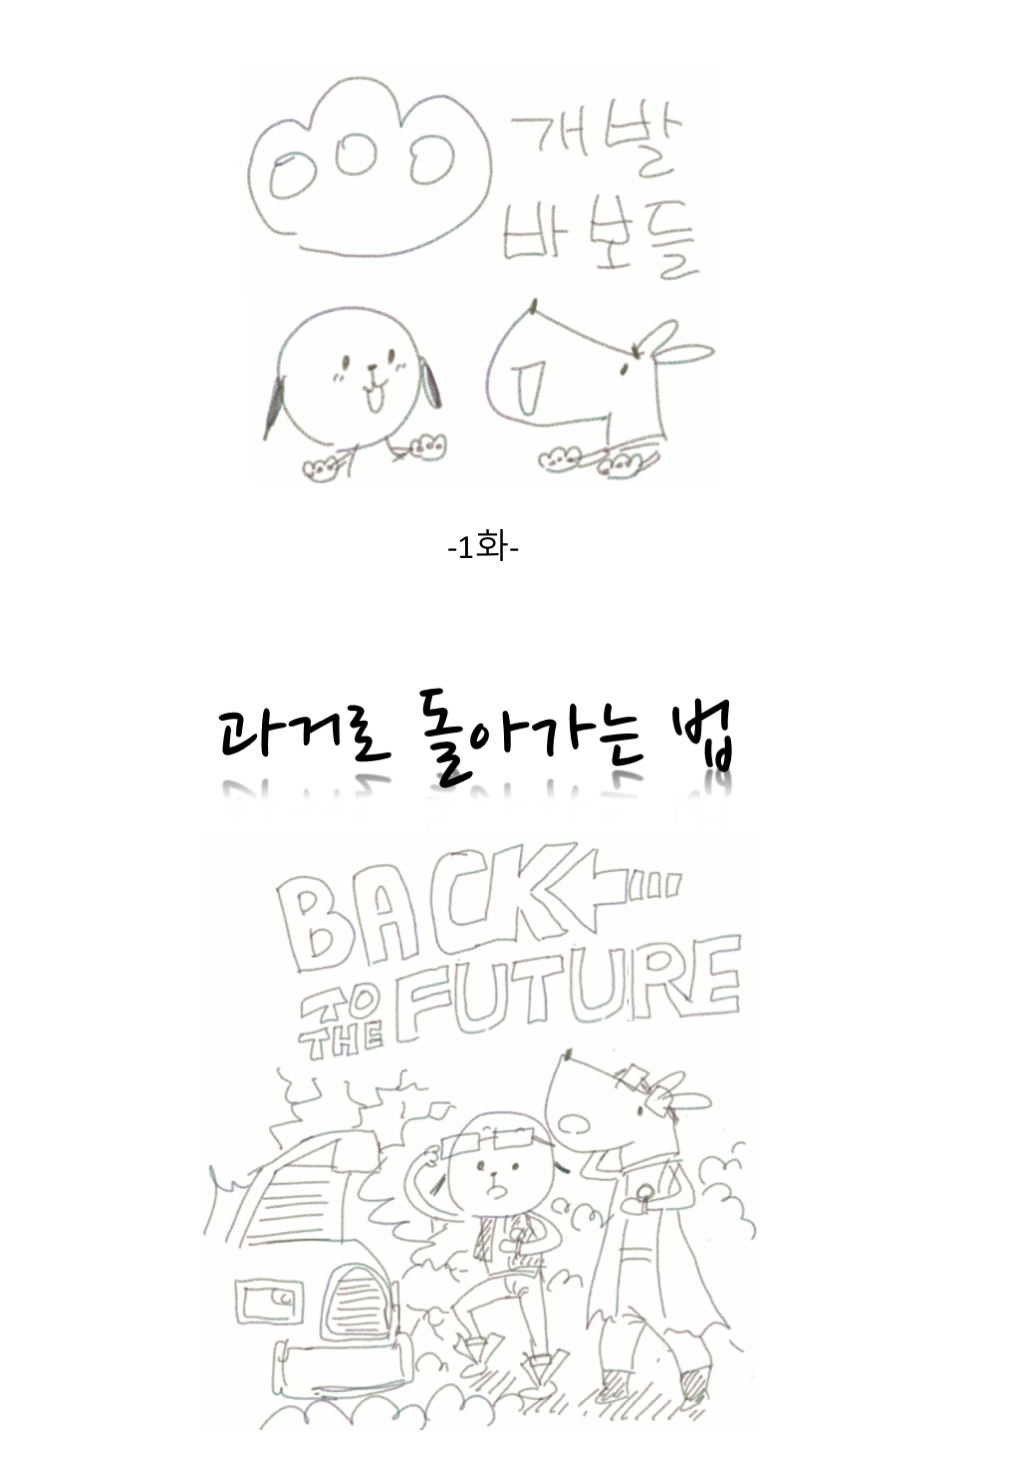 개발
바보들
-1화-
과거로 돌아가는 법
BACK
TO THE FUTURE